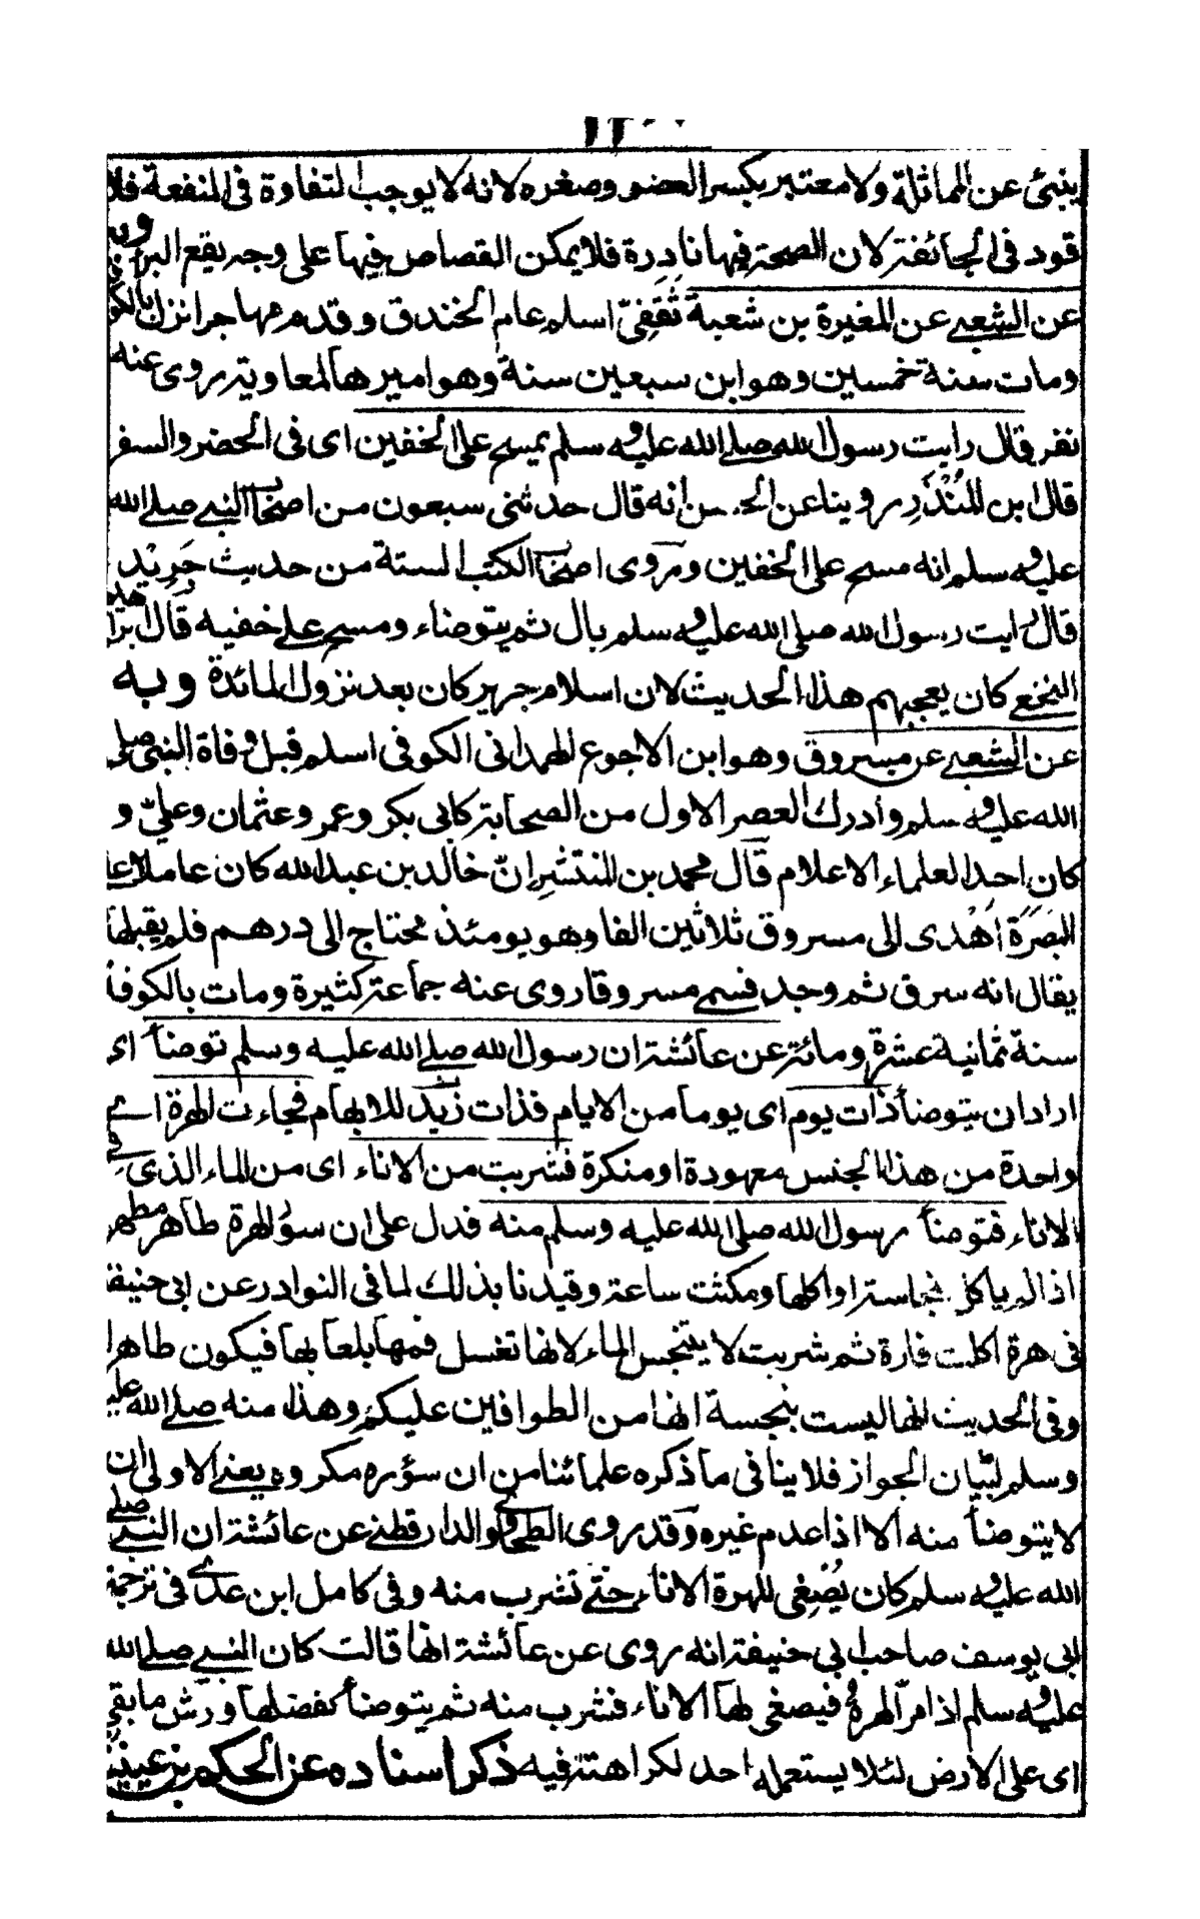 ينبئ عن المماثلة ولا معتبر بكبر العضو وصغره لانه لا يوجب التفاوة فى المنفعة فلا
قود فى الجائفة لان الصحة فيها نادرة فلا يمكن القصاص فيها على وجه يقع البرأ وبه
عن الشعبى عن المغيرة بن شعبة ثَقَفِىّ اسلم عام الخندق وقدم مهاجرا نزل بالكو
ومات سنة خمسين وهو ابن سبعين سنة وهو اميرها لمعاوية روى عنه
نفر قال رايت رسول الله صلى الله عليه وسلم يمسح على الخفين اى فى الحضر والسفر
قال ابن المُنْذِر روينا عن الحسن انه قال حدثنى سبعون من اصحاب النبى صلى الله
عليه وسلم انه مسح على الخفين وروى اصحاب الكتب الستة من حديث جَرِيْر
قال رايت رسول الله صلى الله عليه وسلم بال ثم يتوضاء ومسح على خفيه قال ابراهيم
النخعى كان يعجبهم هذا الحديث لان اسلام جرير كان بعد نزول المائدة وبه
عن الشعبى عن مسروق وهو ابن الاجوع الهمدانى الكوفى اسلم قبل وفاة النبى صلى
الله عليه وسلم وادرك العصر الاول من الصحابة كابى بكر وعمر وعثمان وعلىّ و
كان احد العلماء الاعلام قال محمد بن المنتشر انّ خالد بن عبد الله كان عاملا على
البَصَرَة اَهْدى الى مسروق ثلاثين الفا وهو يومئذ محتاج الى درهم فلم يقبلها
يقال انه سرق ثم وجد فسمى مسروقا روى عنه جماعة كثيرة ومات بالكوفة
سنة ثمانية عشرة ومائة عن عائشة ان رسول الله صلى الله عليه وسلم توضأ اى
اراد ان يتوضأ ذات يوم اى يوما من الايام فذات زيد للابهام فجاءت الهرة اى
واحدة من هذا الجنس معهودة او منكرة فشربت من الاناء اى من الماء الذى فى
الاناء فتوضأ رسول الله صلى الله عليه وسلم منه فدل على ان سؤ الهرة طاهر مطهر
اذا لم ياكل نجاسة او اكلها ومكثت ساعة وقيدنا بذلك لما فى النوادر عن ابى حنيفة
فى هرة اكلت فارة ثم شربت لا يتنجس الماء لانها تغسل فمها بلعابها فيكون طاهرا
وفى الحديث انها ليست بنجسة انها من الطوافين عليكم وهذا منه صلى الله عليه
وسلم لبيان الجواز فلا ينافى ما ذكره علمائنا من ان سؤره مكروه يعنى الاولى ان
لا يتوضأ منه الا اذا عدم غيره وقد روى الطحاوى والدارقطنى عن عائشة ان النبى صلى
الله عليه وسلم كان يُصْغِى للهرة الاناء حتى تشرب منه وفى كامل ابن عدى فى ترجمة
ابى يوسف صاحب ابى حنيفة انه روى عن عائشة انها قالت كان النبى صلى الله
عليه وسلم اذا مرّ الهرة فيصغى لها الاناء فتشرب منه ثم يتوضأ بفضلها ورش ما بقى
اى على الارض لئلا يستعمله احد لكراهته فيه ذكر اسناده عن الحكم بن عيينة